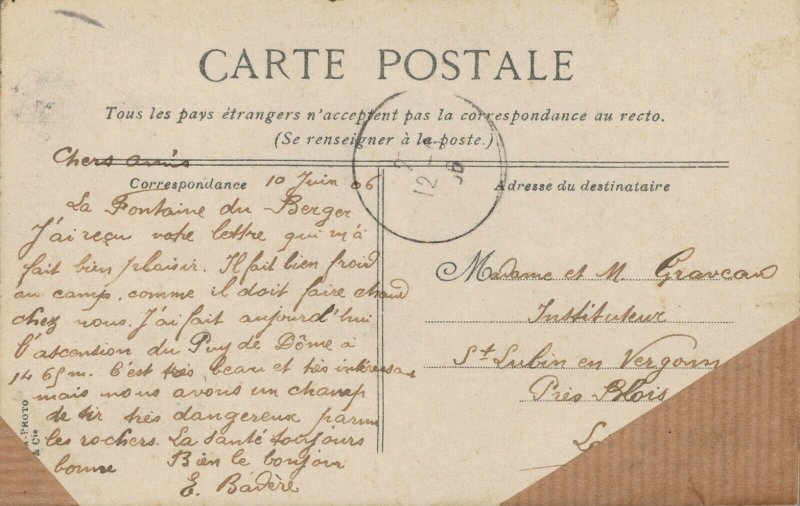 CARTE POSTALE
Tous les pays étrangers n'acceptent pas la correspondance au recto.
(Se renseigner à la poste.)
Chers amis
Correspondance
10 Juin 06
La Fontaine du Berger
J'ai reçu votre lettre qui m'a
fait bien plaisir. Il fait bien froid
au camp. comme il doit faire chaud
chez nous. J'ai fait aujourd'hui
l'ascention du Puy de Dôme à
1465 m. C'est très beau et très intéressan
mais nous avons un champ
de tir très dangereux parmi
les rochers. La santé toujours
bonne Bien le bonjour
E. Badère
Adresse du destinataire
Madame et M Graveau
Instituteur
St Lubin en Vergonn
Près Blois
12
06
-PHOTO
& Cie